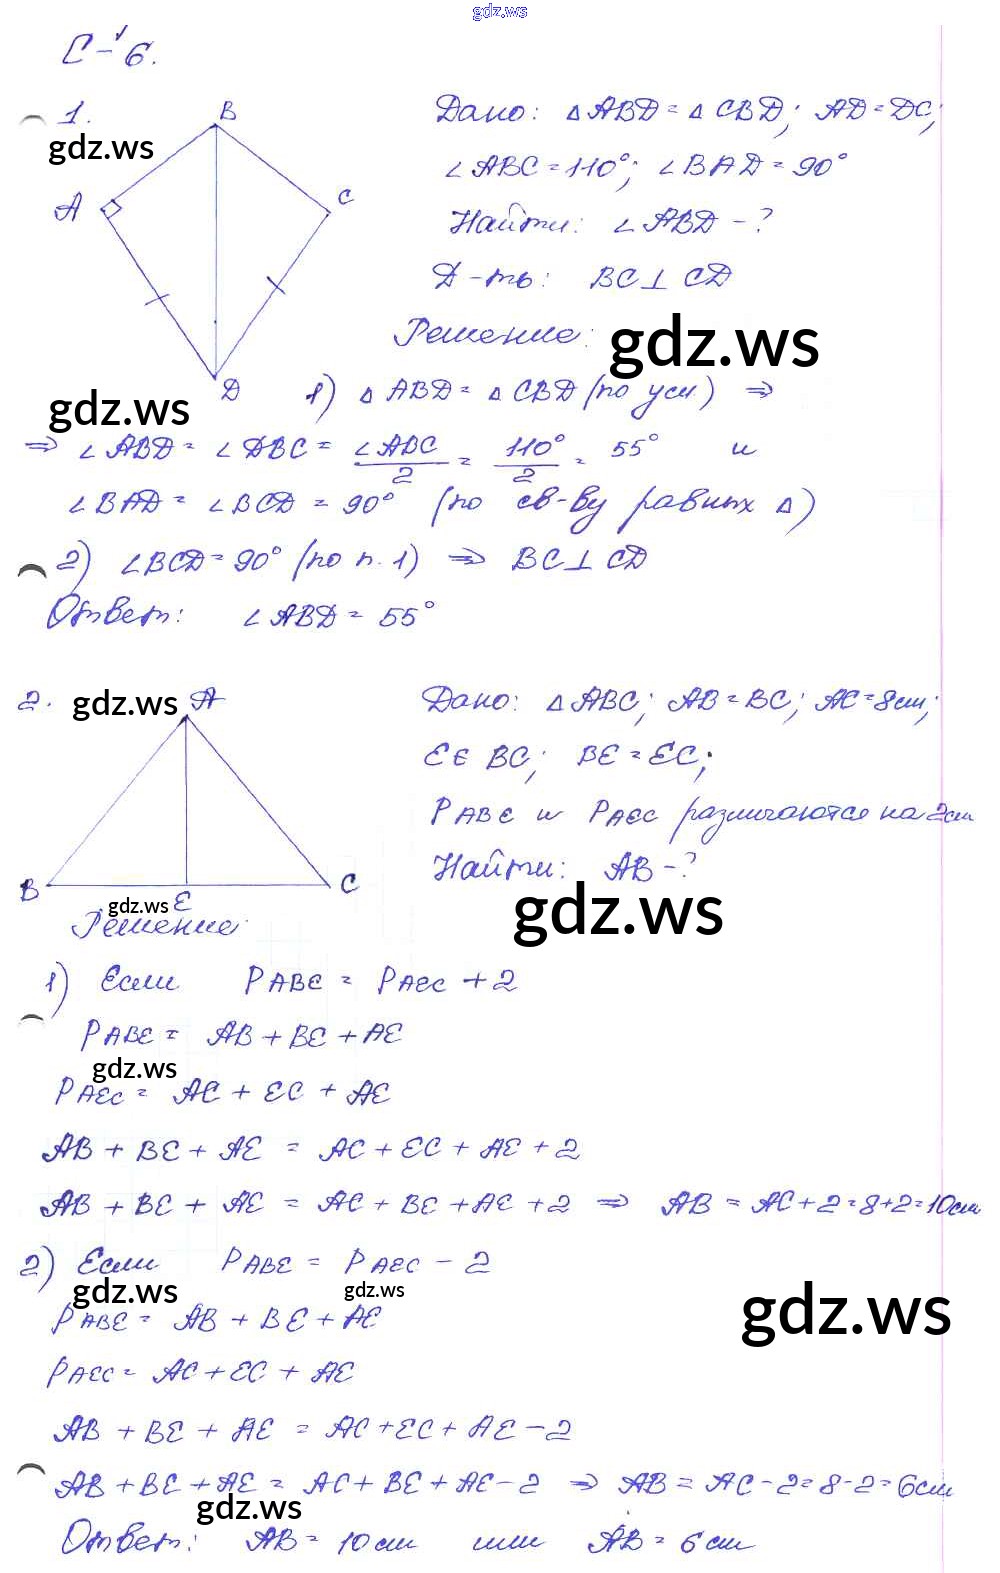 gdz.ws
С-6.
1.
gdz.ws
B
A
C
D
Дано: △ABD = △CBD; AD = DC;
∠ABC = 110°; ∠BAD = 90°
Найти: ∠ABD - ?
Д-ть: BC ⊥ CD
Решение:
gdz.ws
gdz.ws
1) △ABD = △CBD (по усл.) ⇒
⇒ ∠ABD = ∠DBC = ∠ABC/2 = 110°/2 = 55° и
∠BAD = ∠BCD = 90° (по св-ву равных △)
2) ∠BCD = 90° (по п. 1) ⇒ BC ⊥ CD
Ответ: ∠ABD = 55°
2.
gdz.ws
A
B
E
C
Дано: △ABC; AB = BC; AC = 8см;
E ∈ BC; BE = EC;
PABE и PAEC различаются на 2см
Найти: AB - ?
gdz.ws
gdz.ws
Решение:
1) Если PABE = PAEC + 2
PABE = AB + BE + AE
gdz.ws
PAEC = AC + EC + AE
AB + BE + AE = AC + EC + AE + 2
AB + BE + AE = AC + BE + AE + 2 ⇒ AB = AC + 2 = 8 + 2 = 10см
2) Если PABE = PAEC - 2
gdz.ws
gdz.ws
gdz.ws
PABE = AB + BE + AE
PAEC = AC + EC + AE
AB + BE + AE = AC + EC + AE - 2
AB + BE + AE = AC + BE + AE - 2 ⇒ AB = AC - 2 = 8 - 2 = 6см
gdz.ws
Ответ: AB = 10 см или AB = 6 см